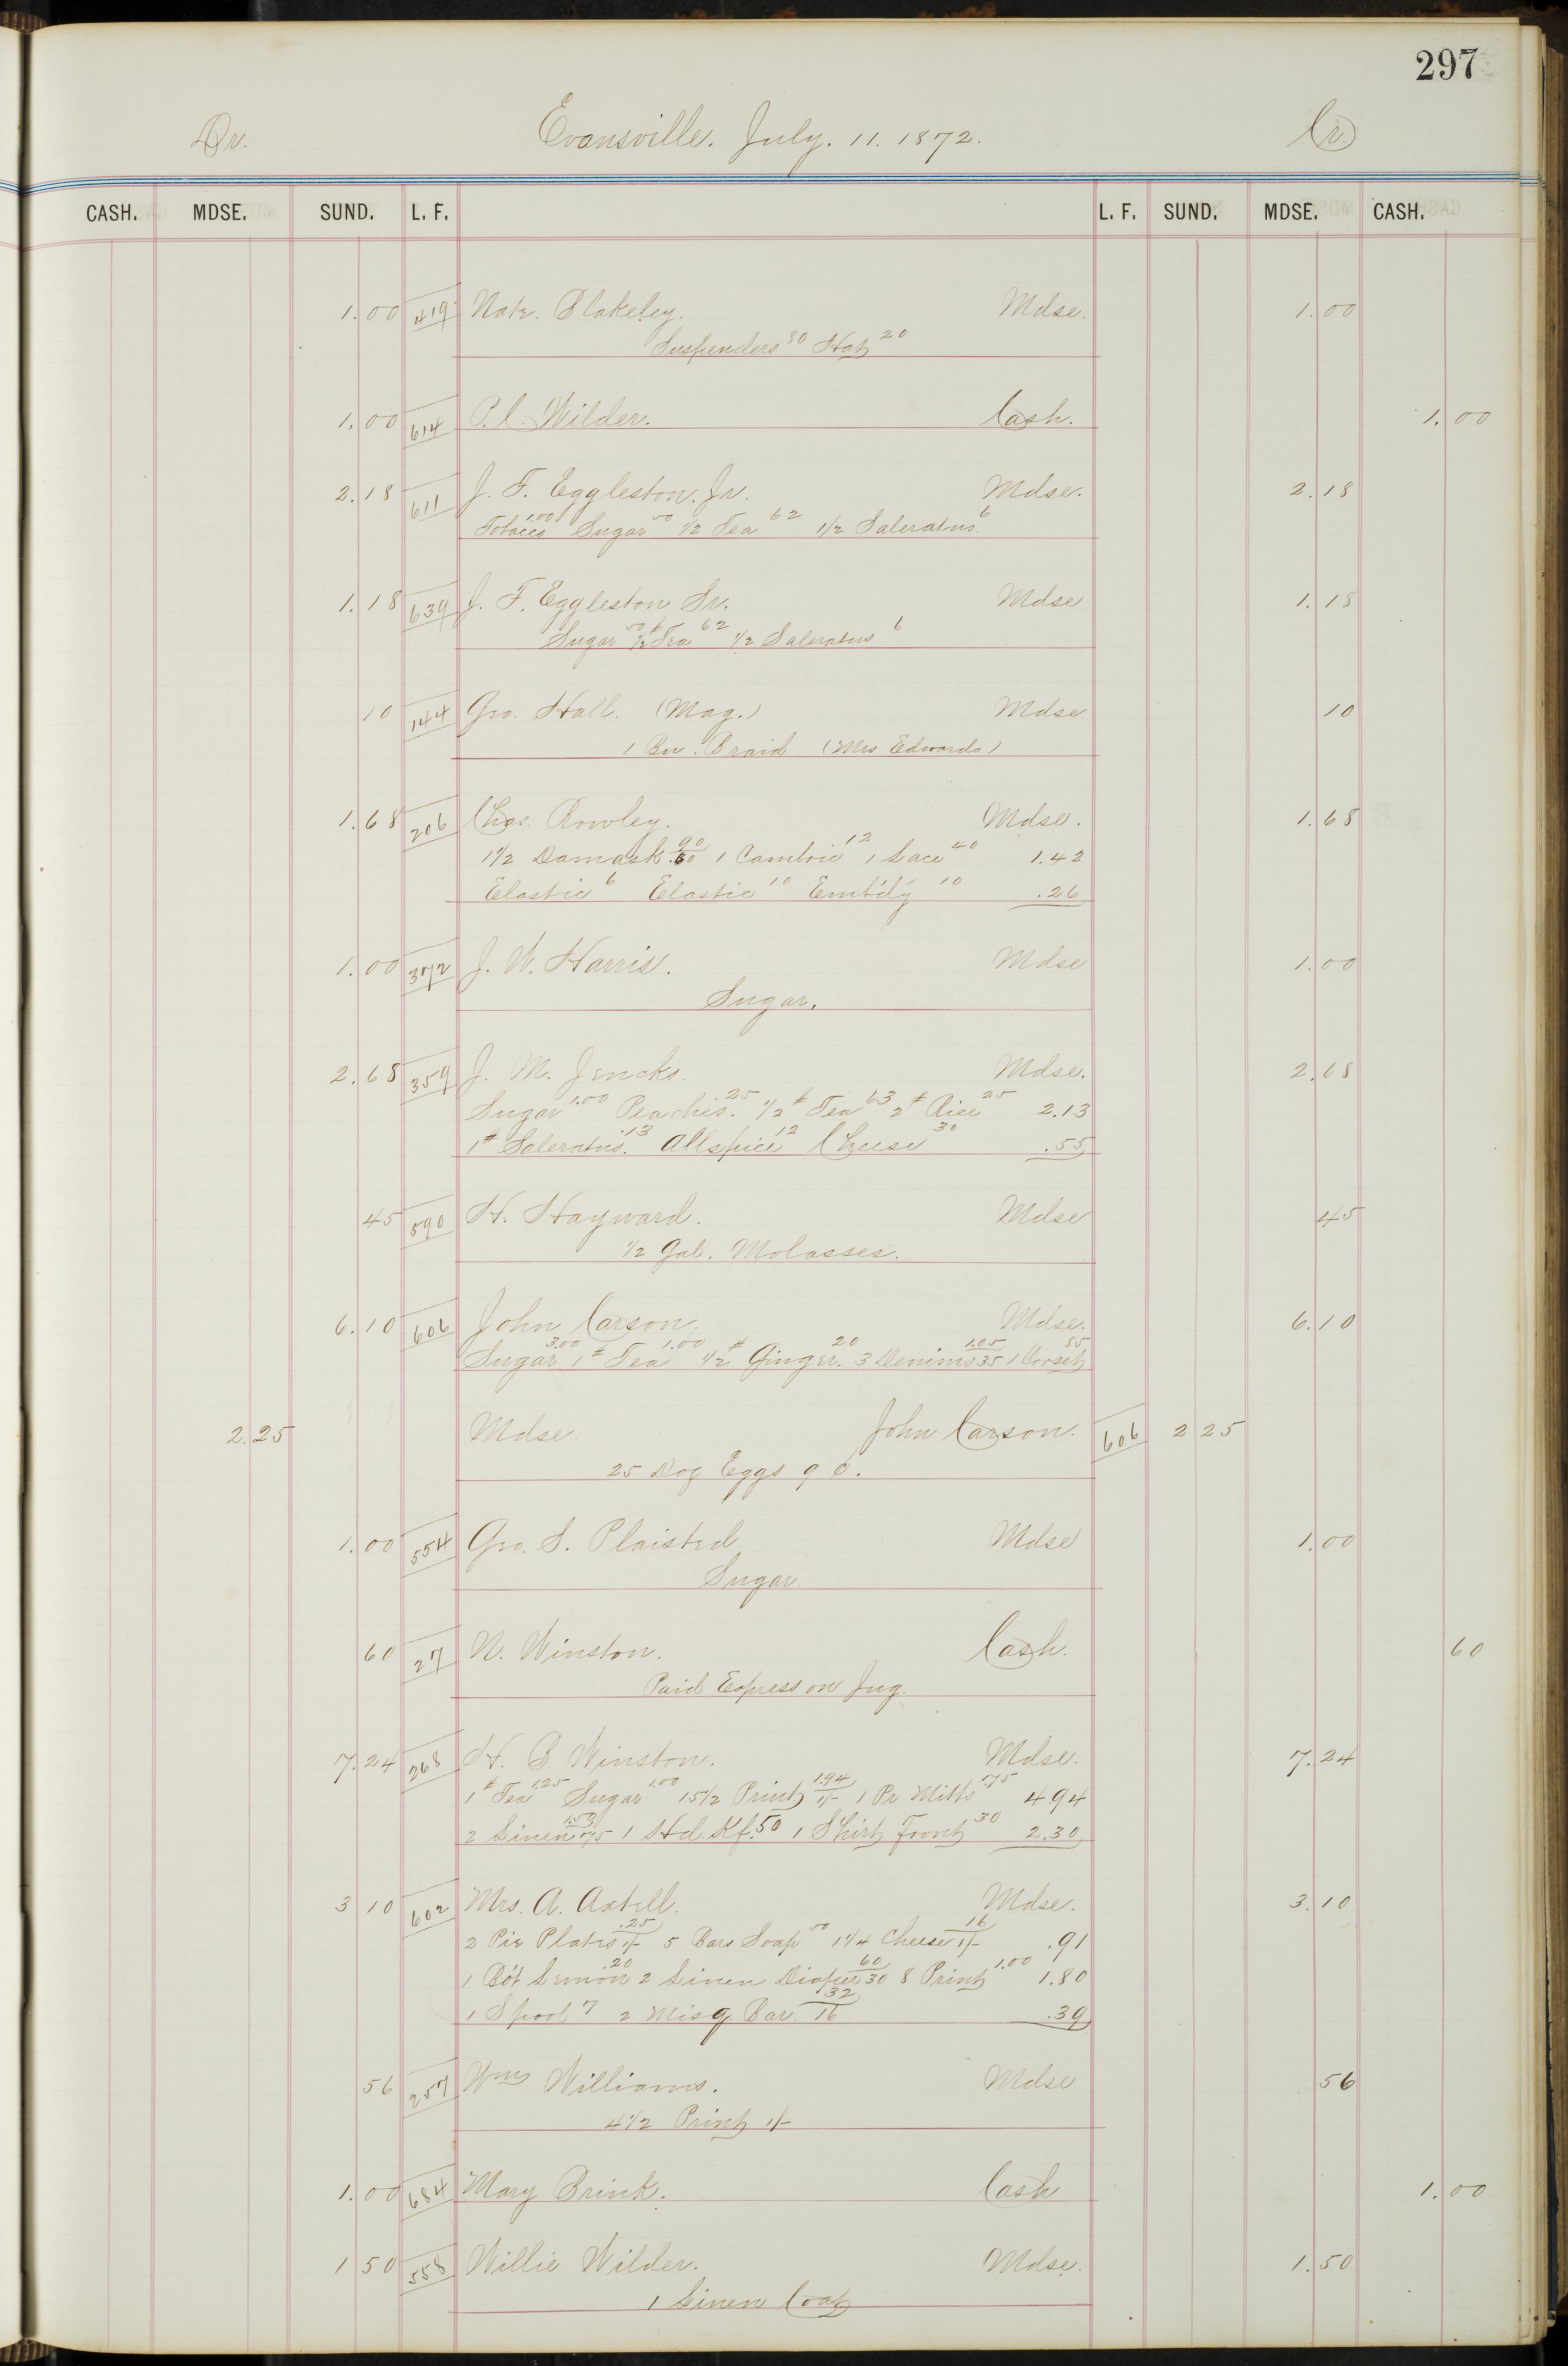 297
Dr. Evansville. July. 11. 1872. Cr.
CASH. MDSE. SUND. L. F. L. F. SUND. MDSE. CASH.
1.00 419 Nate. Blakeley. Mdse. 1.00
Suspenders 80 Hat 20
1.00 614 P. C. Wilder. Cash. 1.00
2.18 611 J. F. Eggleston. Jr. Mdse. 2.18
Tobacco 1.00 Sugar 50 1/2 Tea 62 1/2 Saleratus. 6
1.18 639 J. F. Eggleston Sr. Mdse 1.18
Sugar 50 1/2 # Tea 62 1/2 Saleratus 6
10 144 Geo. Hall. (Mag.) Mdse 10
1 Bu. Braid (Mrs Edwards)
1.68 206 Chas. Rowley. Mdse. 1.68
1 1/2 Damask 90 .60 1 Cambric 12 1 Lace 40 1.42
Elastic 6 Elastic 10 Emb'd'y 10 .26
1.00 372 J. W. Harris. Mdse 1.00
Sugar.
2.68 359 J. M. Jencks. Mdse. 2.68
Sugar 1.00 Peaches. 25 1/2 # Tea 63 2 # Rice 25 2.13
1 # Saleratus. 13 Allspice 12 Cheese 30 .55
45 590 H. Hayward. Mdse 45
1/2 Gal. Molasses.
6.10 606 John Carson. Mdse. 6.10
Sugar 3.00 1 # Tea 1.00 1/2 # Ginger. 20 3 Denims 1.05 35 1 Corset 85
2.25 Mdse. John Carson. 606 2 25
25 Doz Eggs 9 c.
1.00 554 Geo. S. Plaisted Mdse 1.00
Sugar
60 27 N. Winston. Cash. 60
Paid Express on Jug.
7.24 268 H. B Winston. Mdse. 7.24
1 # Tea 1.25 Sugar 1.00 15 1/2 Print 1.94 1/- 1 Pr Mitts 75 4.94
2 Linen 1.50 75 1 Hd. Kf. 50 1 Shirt Front 30 2.30
3 10 602 Mrs. A. Axtell. Mdse. 3.10
2 Pie Plates .25 1/- 5 Bars Soap 50 1 1/4 Cheese 16 1/- .91
1 Bot Lemon .20 2 Linen Diaper 60 30 8 Print 1.00 1.80
1 Spool 7 2 Misq. Bar. 32 16 .39
56 257 Wm Williams. Mdse 56
4 1/2 Print 1/-
1.00 684 Mary Brink. Cash 1.00
1 50 558 Willie Wilder. Mdse. 1.50
1 Linen Coat